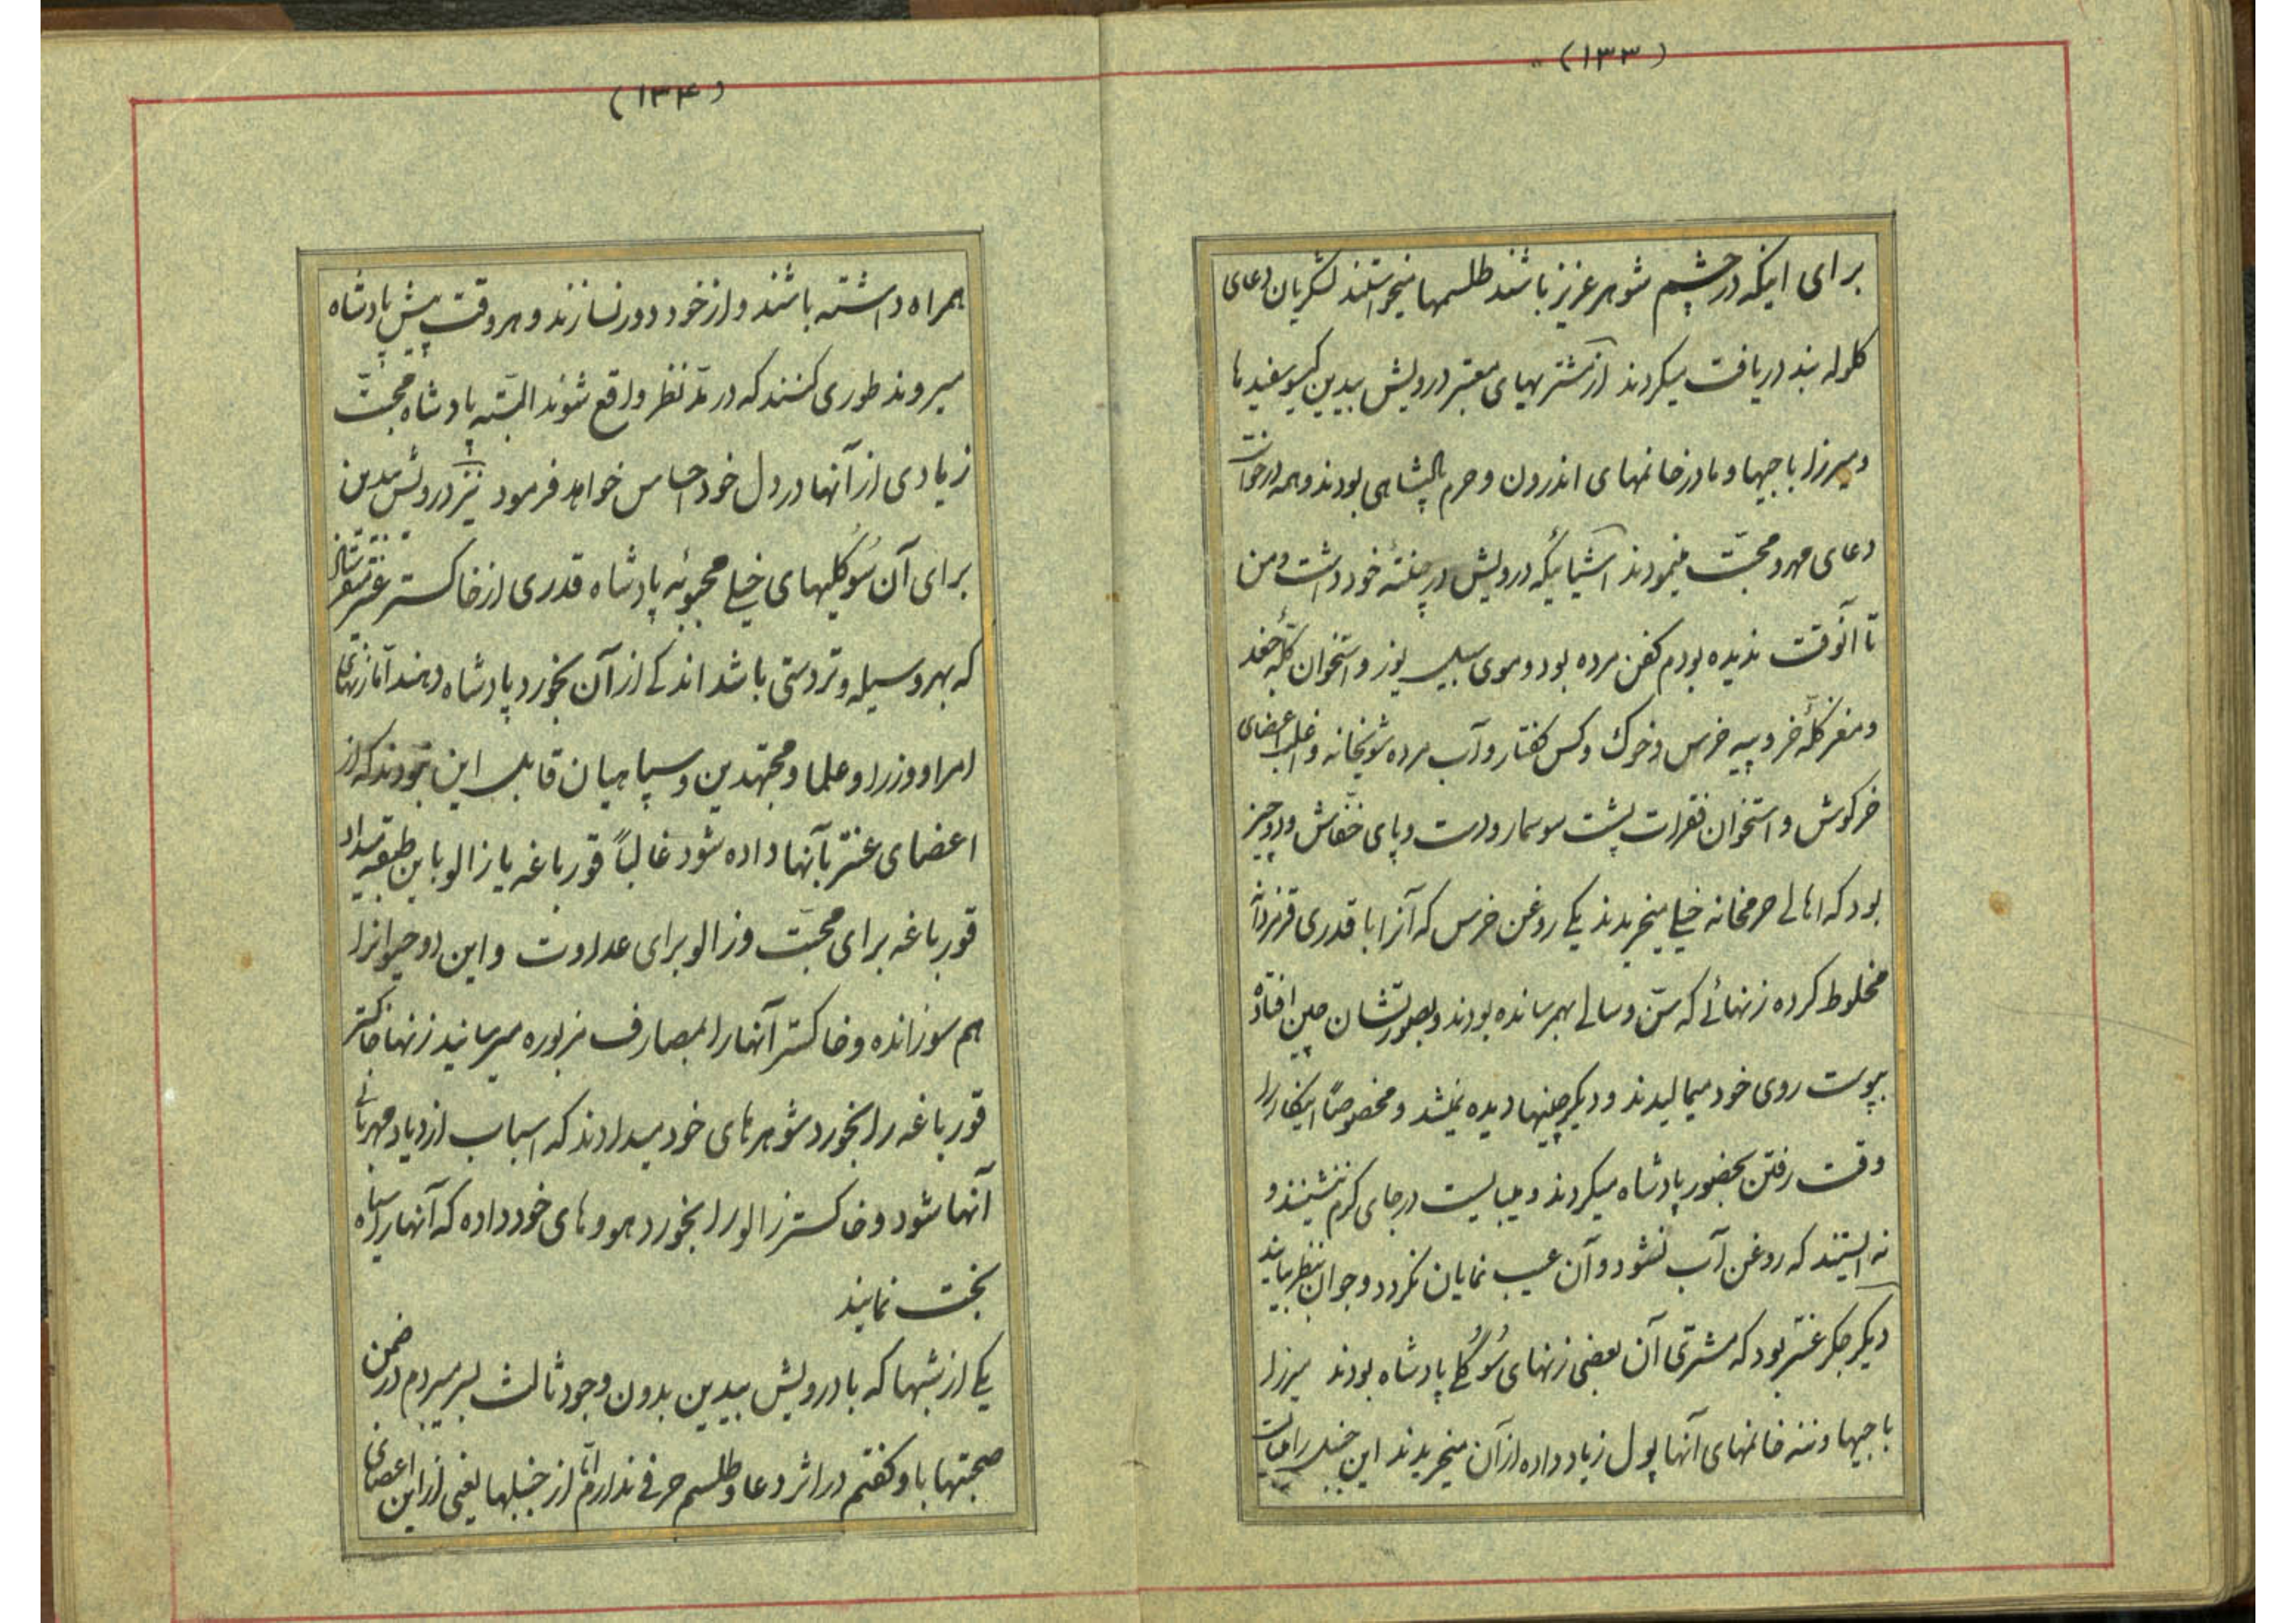 (۱۳۳)
برای اینکه در چشم شوهر عزیز باشند طلسمها میخواستند لشکریان دعای
کلوله بند دریافت میکردند از مشتریهای معتبر درویش بیدین کیسو سفیدها
و میرزا باجیها و مادر خانمهای اندرون و حرم پادشاهی بودند و همه درخواست
دعای مهر و محبّت مینمودند اشیائیکه درویش در چنتهٔ خود داشت و من
تا آنوقت ندیده بودم کفن مرده بود و موی سبیل یوز و استخوان کلّهٔ جغد
و مغز کلّهٔ خر و پیه خرس و خوک و کس کفتار و آب مرده شویخانه و اغلب اعضای
خرکوش و استخوان فقرات پشت سوسمار و دست و پای خفّاش و دو چیز
بود که اهالی حرمخانه خیلی میخریدند یکی روغن خرس که آنرا با قدری قرمزدانه
مخلوط کرده زنهائی که سنّ و سالی بهمرسانده بودند و بصورتشان چین افتاده
بپوست روی خود میمالیدند و دیکر چینها دیده نمیشد و مخصوصاً اینکار را
وقت رفتن بحضور پادشاه میکردند و میبایست در جای کرم ننشینند و
نه ایستند که روغن آب نشود و آن عیب نمایان نکردد و جوان بنظر بیایند
دیکر جکر عنتر بود که مشتری آن بعضی زنهای سُوکُلی پادشاه بودند میرزا
باجیها و ننه خانمهای آنها پول زیاد داده از آن میخریدند این جنس را میبایست
(۱۳۴)
همراه داشته باشند و از خود دور نسازند و هر وقت پیش پادشاه
میروند طوری کنند که در مدّ نظر واقع شوند البتّه پادشاه محبّت
زیادی از آنها در دل خود احساس خواهد فرمود نیز درویش بیدین
برای آن سُوکُلیهای خیلی محبوبهٔ پادشاه قدری از خاکستر عنتر میفرستاد
که بهر وسیله و تردستی باشد اندکی از آن بخورد پادشاه دهند امّا زنهای
امرا و وزرا و علما و مجتهدین و سپاهیان قابل این نبودند که از
اعضای عنتر بآنها داده شود غالباً قورباغه یا زالو باین طبقه میداد
قورباغه برای محبّت و زالو برای عداوت و این دو حیوانرا
هم سوزانده و خاکستر آنها را بمصارف مزبوره میرسانید زنها خاکستر
قورباغه را بخورد شوهرهای خود میدادند که اسباب ازدیاد مهربانی
آنها شود و خاکستر زالو را بخورد هووهای خود داده که آنها را سیاه
بخت نمایند
یکی از شبها که با درویش بیدین بدون وجود ثالث بسر میبردم در ضمن
صحبتها باو کفتم در اثر دعا و طلسم حرفی ندارم امّا از خیلیها یعنی از این اعضای